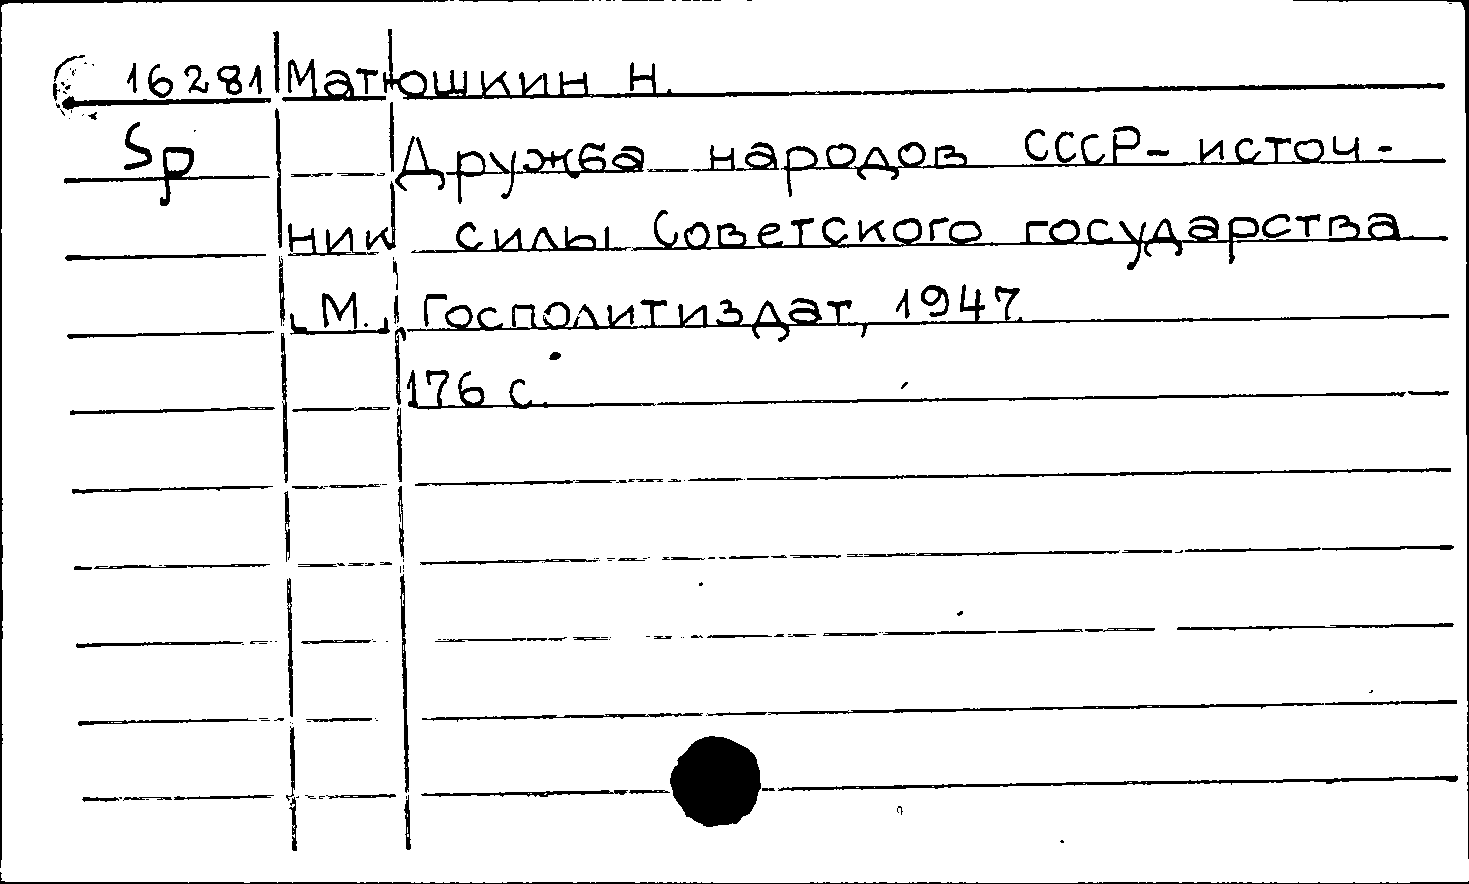 16281 Матюшкин Н.
Sp Дружба народов СССР - источ-
ник силы Советского государства
М., Госполитиздат, 1947.
176 с.